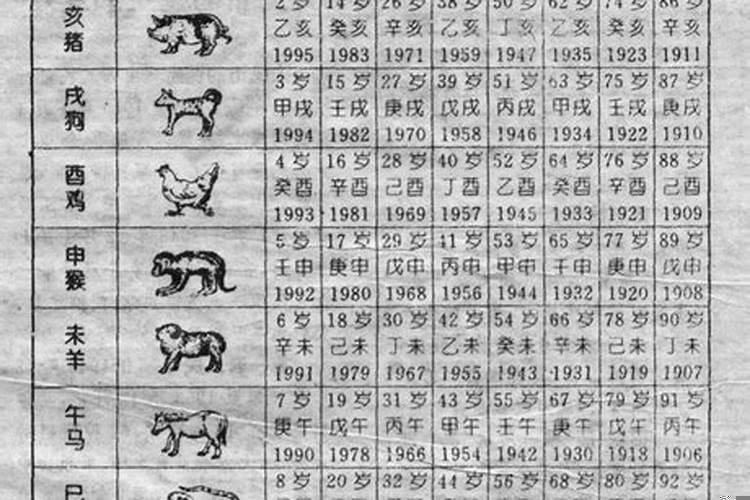 亥猪
2岁 14岁 26岁 38岁 50岁 62岁 74岁 86岁
乙亥 癸亥 辛亥 乙亥 丁亥 乙亥 癸亥 辛亥
1995 1983 1971 1959 1947 1935 1923 1911
戌狗
3岁 15岁 27岁 39岁 51岁 63岁 75岁 87岁
甲戌 壬戌 庚戌 戊戌 丙戌 甲戌 壬戌 庚戌
1994 1982 1970 1958 1946 1934 1922 1910
酉鸡
4岁 16岁 28岁 40岁 52岁 64岁 76岁 88岁
癸酉 辛酉 己酉 丁酉 乙酉 癸酉 辛酉 己酉
1993 1981 1969 1957 1945 1933 1921 1909
申猴
5岁 17岁 29岁 41岁 53岁 65岁 77岁 89岁
壬申 庚申 戊申 丙申 甲申 壬申 庚申 戊申
1992 1980 1968 1956 1944 1932 1920 1908
未羊
6岁 18岁 30岁 42岁 54岁 66岁 78岁 90岁
辛未 己未 丁未 乙未 癸未 辛未 己未 丁未
1991 1979 1967 1955 1943 1931 1919 1907
午马
7岁 19岁 31岁 43岁 55岁 67岁 79岁 91岁
庚午 戊午 丙午 甲午 壬午 庚午 戊午 丙午
1990 1978 1966 1954 1942 1930 1918 1906
巳
8岁 20岁 32岁 44岁 56岁 68岁 80岁 92岁